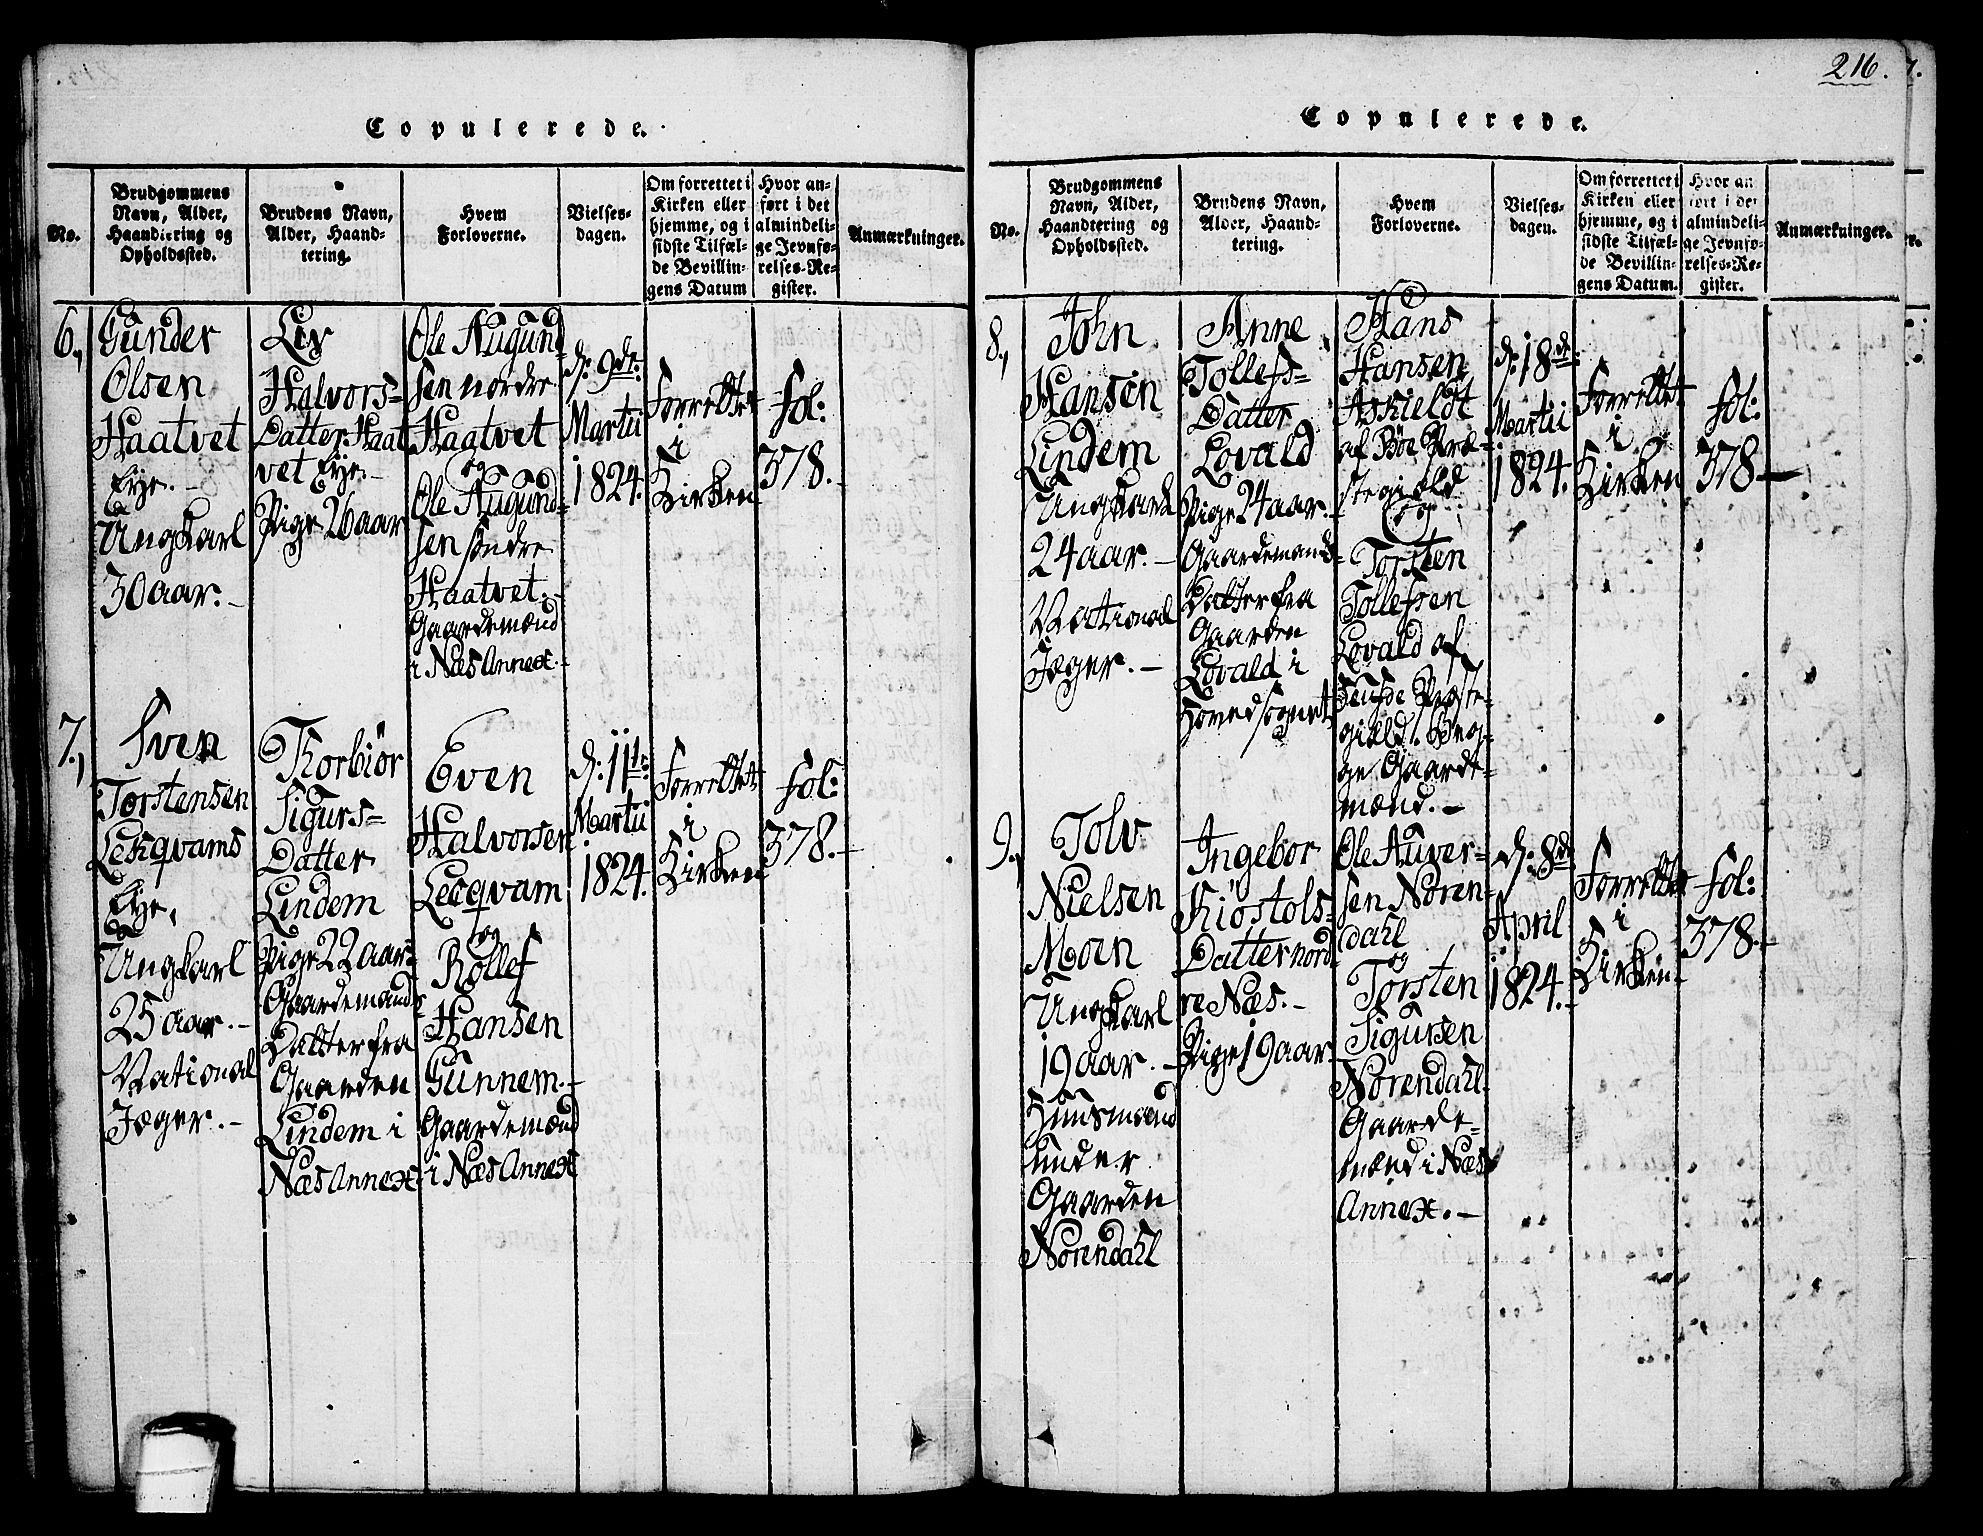 216.
Copulerede.
No.
Brudgommens
Navn, Alder,
Haandtering og
Opholdssted.
Brudens Navn,
Alder, Haand-
tering.
Hvem
Forloverne.
Vielses-
dagen.
Om forrettet i
Kirken eller
hjemme, og i
sidste Tilfæl-
de Bevillin-
gens Datum
Hvor an-
ført i det
almindeli-
ge Jevnfø-
relses-Re-
gister.
Anmærkninger.
6.,
Gunder
Olsen
Haatvet
Eye.-
Ungkarl
30 aar.-
Liv
Halvors=
Datter Haat
vet Eye.-
Pige 26 aar
Ole Augund
sen nordre
Haatvet
og
Ole Augund=
sen søndre
Haatvet.-
Gaardemænd
i Næs Annex.-
d: 9de:
Martii
1824.
Forrettet
i
Kirken
fol:
378.-
7.,
Sven
Torstensen
Leqvams
Eye,
Ungkarl
25 aar.-
National
Jæger.-
Thorbiör
Sigurs=
Datter
Lindem
Pige 22 aar.
Gaardemands
Datter fra
Gaarden
Lindem i
Næs Annex.
Even
Halvorsen
Lecqvam
og
Rollef
Hansen
Gunnem.-
Gaardemænd
i Næs Annex
d: 11te
Martii
1824.
Forrettet
i
Kirken
fol:
378.-
Copulerede.
No.
Brudgommens
Navn, Alder,
Haandtering og
Opholdssted.
Brudens Navn,
Alder, Haand-
tering.
Hvem
Forloverne.
Vielses-
dagen.
Om forrettet i
Kirken eller
hjemme, og i
sidste Tilfæl-
de Bevillin-
gens Datum.
Hvor an
ført i det
almindeli-
ge Jevnfø-
relses-Re-
gister.
Anmærkninger.
8.,
John
Hansen
Lindem
Ungkarl
24 aar.-
National
Jæger.-
Anne
Tollefs=
Datter
Lovald
Pige 24 aar.-
Gaardemands
Datter fra
Gaarden
Lovald i
Hovedsognet
Hans
Hansen
Askieldt
af Böe Præ-
stegield
og
Torsten
Tollefsen
Lovald af
Præste-
gield. Beg-
ge Gaarde-
mænd.-
d: 18de:
Martii
1824.
Forrettet
i
Kirken
fol:
378-
9.,
Tolv
Nielsen
Moen
Ungkarl
19 aar.-
Huusmand
under
Gaarden
Nörendahl
Ingebor
Kiöstols=
Datter nord
re Næs.-
Pige 19 aar.
Ole Auver-
sen Nören-
dahl
og
Torsten
Sigursen
Nörendahl.
Gaarde-
mænd i Næs
Annex.-
d: 8de
April
1824.-
Forrettet
i
Kirken.
fol:
378.-